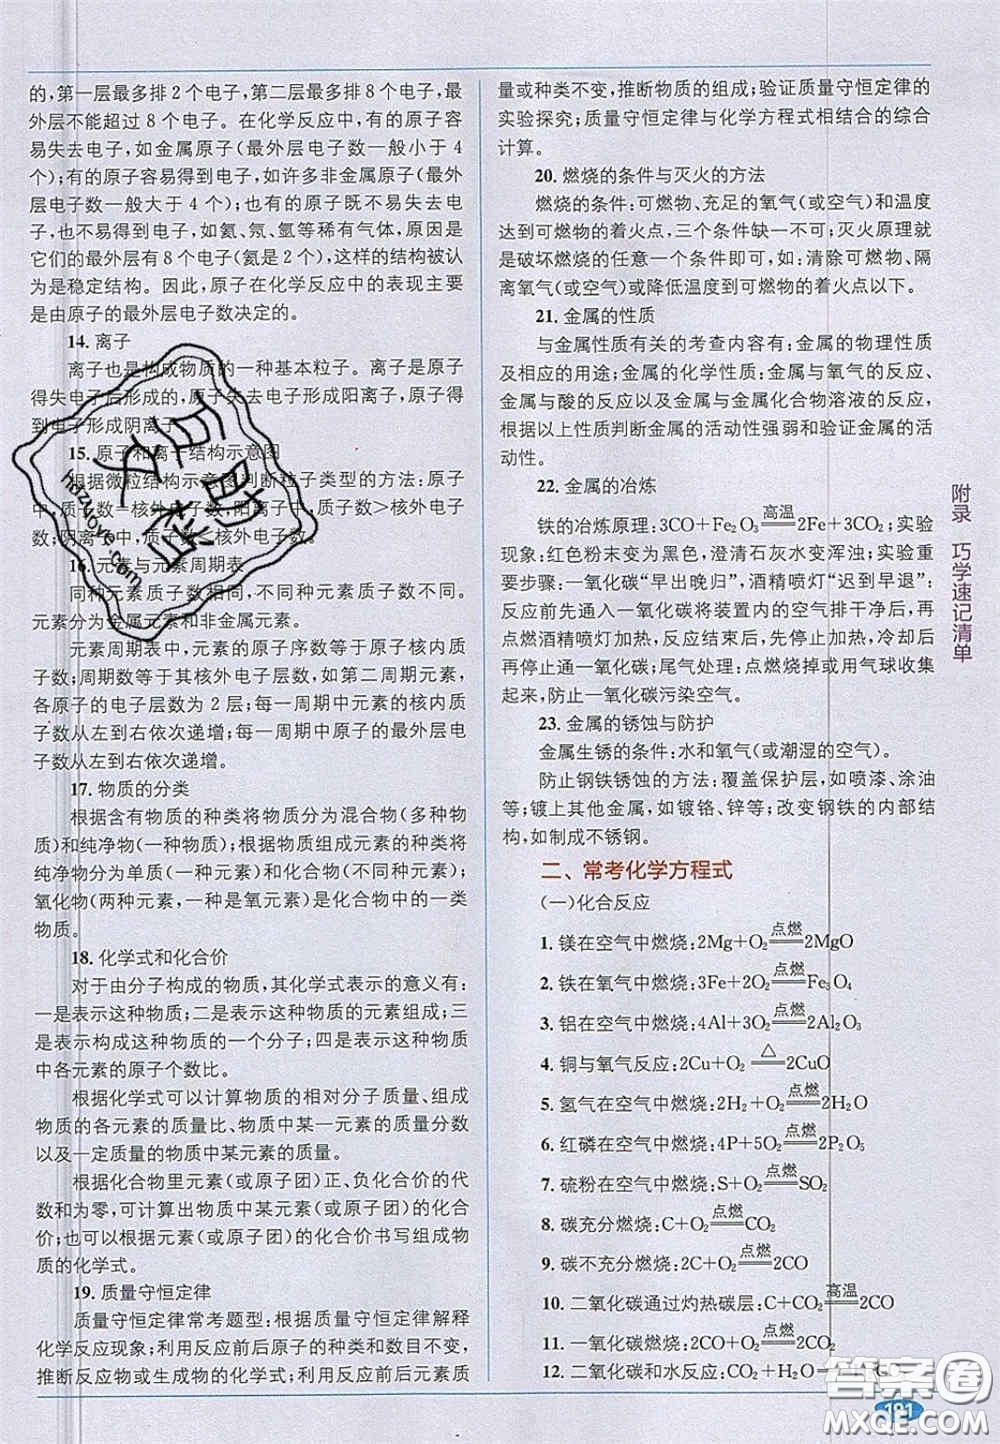 的,第一层最多排2个电子,第二层最多排8个电子,最
外层不能超过8个电子。在化学反应中,有的原子容
易失去电子,如金属原子(最外层电子数一般小于4
个);有的原子容易得到电子,如许多非金属原子(最外
层电子数一般大于4个);也有的原子既不易失去电
子,也不易得到电子,如氦、氖、氩等稀有气体,原因是
它们的最外层有8个电子(氦是2个),这样的结构被认
为是稳定结构。因此,原子在化学反应中的表现主要
是由原子的最外层电子数决定的。
14. 离子
离子也是构成物质的一种基本粒子。离子是原子
得失电子后形成的,原子失去电子形成阳离子,原子得
到电子形成阴离子。
15. 原子和离子结构示意图
根据微粒结构示意图判断粒子类型的方法:原子
中,质子数=核外电子数,阳离子中,质子数>核外电子
数;阴离子中,质子数<核外电子数。
16. 元素与元素周期表
同种元素质子数相同,不同种元素质子数不同。
元素分为金属元素和非金属元素。
元素周期表中,元素的原子序数等于原子核内质
子数;周期数等于其核外电子层数,如第二周期元素,
各原子的电子层数为2层;每一周期元素的核内质
子数从左到右依次递增;每一周期中原子的最外层电
子数从左到右依次递增。
17. 物质的分类
根据含有物质的种类将物质分为混合物(多种物
质)和纯净物(一种物质);根据物质组成元素的种类将
纯净物分为单质(一种元素)和化合物(多种元素);
氧化物(两种元素,一种是氧元素)是化合物中的一类
物质。
18. 化学式和化合价
对于由分子构成的物质,其化学式表示的意义有:
一是表示这种物质;二是表示这种物质的元素组成;三
是表示构成这种物质的一个分子;四是表示这种物质
中各元素的原子个数比。
根据化学式可以计算物质的相对分子质量、组成
物质的各元素的质量比、物质中某一元素的质量分数
以及一定质量的物质中某元素的质量。
根据化合物里元素(或原子团)正、负化合价的代
数和为零,可计算出物质中某元素(或原子团)的化合
价;也可以根据元素(或原子团)的化合价书写组成物
质的化学式。
19. 质量守恒定律
质量守恒定律常考题型:根据质量守恒定律解释
化学反应现象;利用反应前后原子的种类和数目不变,
推断反应物或生成物的化学式;利用反应前后元素质
量或种类不变,推断物质的组成;验证质量守恒定律的
实验探究;质量守恒定律与化学方程式相结合的综合
计算。
20. 燃烧的条件与灭火的方法
燃烧的条件:可燃物、充足的氧气(或空气)和温度
达到可燃物的着火点,三个条件缺一不可;灭火原理就
是破坏燃烧的任意一个条件即可,如:清除可燃物、隔
离氧气(或空气)或降低温度到可燃物的着火点以下。
21. 金属的性质
与金属性质有关的考查内容有:金属的物理性质
及相应的用途;金属的化学性质:金属与氧气的反应、
金属与酸的反应以及金属与金属化合物溶液的反应,
根据以上性质判断金属的活动性强弱和验证金属的活
动性。
22. 金属的冶炼
铁的冶炼原理:3CO+Fe₂O₃ 高温═ 2Fe+3CO₂;实验
现象:红色粉末变为黑色,澄清石灰水变浑浊;实验重
要步骤:一氧化碳“早出晚归”,酒精喷灯“迟到早退”:
反应前先通入一氧化碳将装置内的空气排干净后,再
点燃酒精喷灯加热,反应结束后,先停止加热,冷却后
再停止通一氧化碳;尾气处理:点燃烧掉或用气球收集
起来,防止一氧化碳污染空气。
23. 金属的锈蚀与防护
金属生锈的条件:水和氧气(或潮湿的空气)。
防止钢铁锈蚀的方法;覆盖保护层,如喷漆、涂油
等;镀上其他金属,如镀铬、锌等;改变钢铁的内部结
构,如制成不锈钢。
二、常考化学方程式
(一)化合反应
1. 镁在空气中燃烧:2Mg+O₂ 点燃═ 2MgO
2. 铁在氧气中燃烧:3Fe+2O₂ 点燃═ Fe₃O₄
3. 铝在空气中燃烧:4Al+3O₂ 点燃═ 2Al₂O₃
4. 铜与氧气反应:2Cu+O₂ △═ 2CuO
5. 氢气在空气中燃烧:2H₂+O₂ 点燃═ 2H₂O
6. 红磷在空气中燃烧:4P+5O₂ 点燃═ 2P₂O₅
7. 硫粉在空气中燃烧:S+O₂ 点燃═ SO₂
8. 碳充分燃烧:C+O₂ 点燃═ CO₂
9. 碳不充分燃烧:2C+O₂ 点燃═ 2CO
10. 二氧化碳通过灼热碳层:C+CO₂ 高温═ 2CO
11. 一氧化碳燃烧:2CO+O₂ 点燃═ 2CO₂
12. 二氧化碳和水反应:CO₂+H₂O═
附录 巧学速记清单
191
hdzuoye.com
答案圈
MXQE.COM